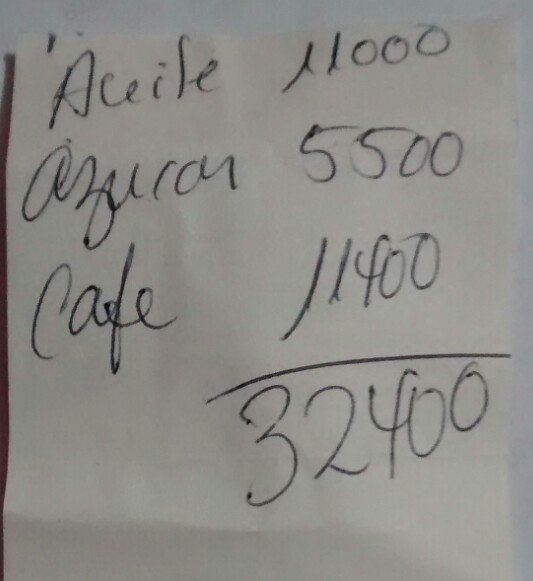 Aceite 11000
azucar 5500
Cafe 11400
32400